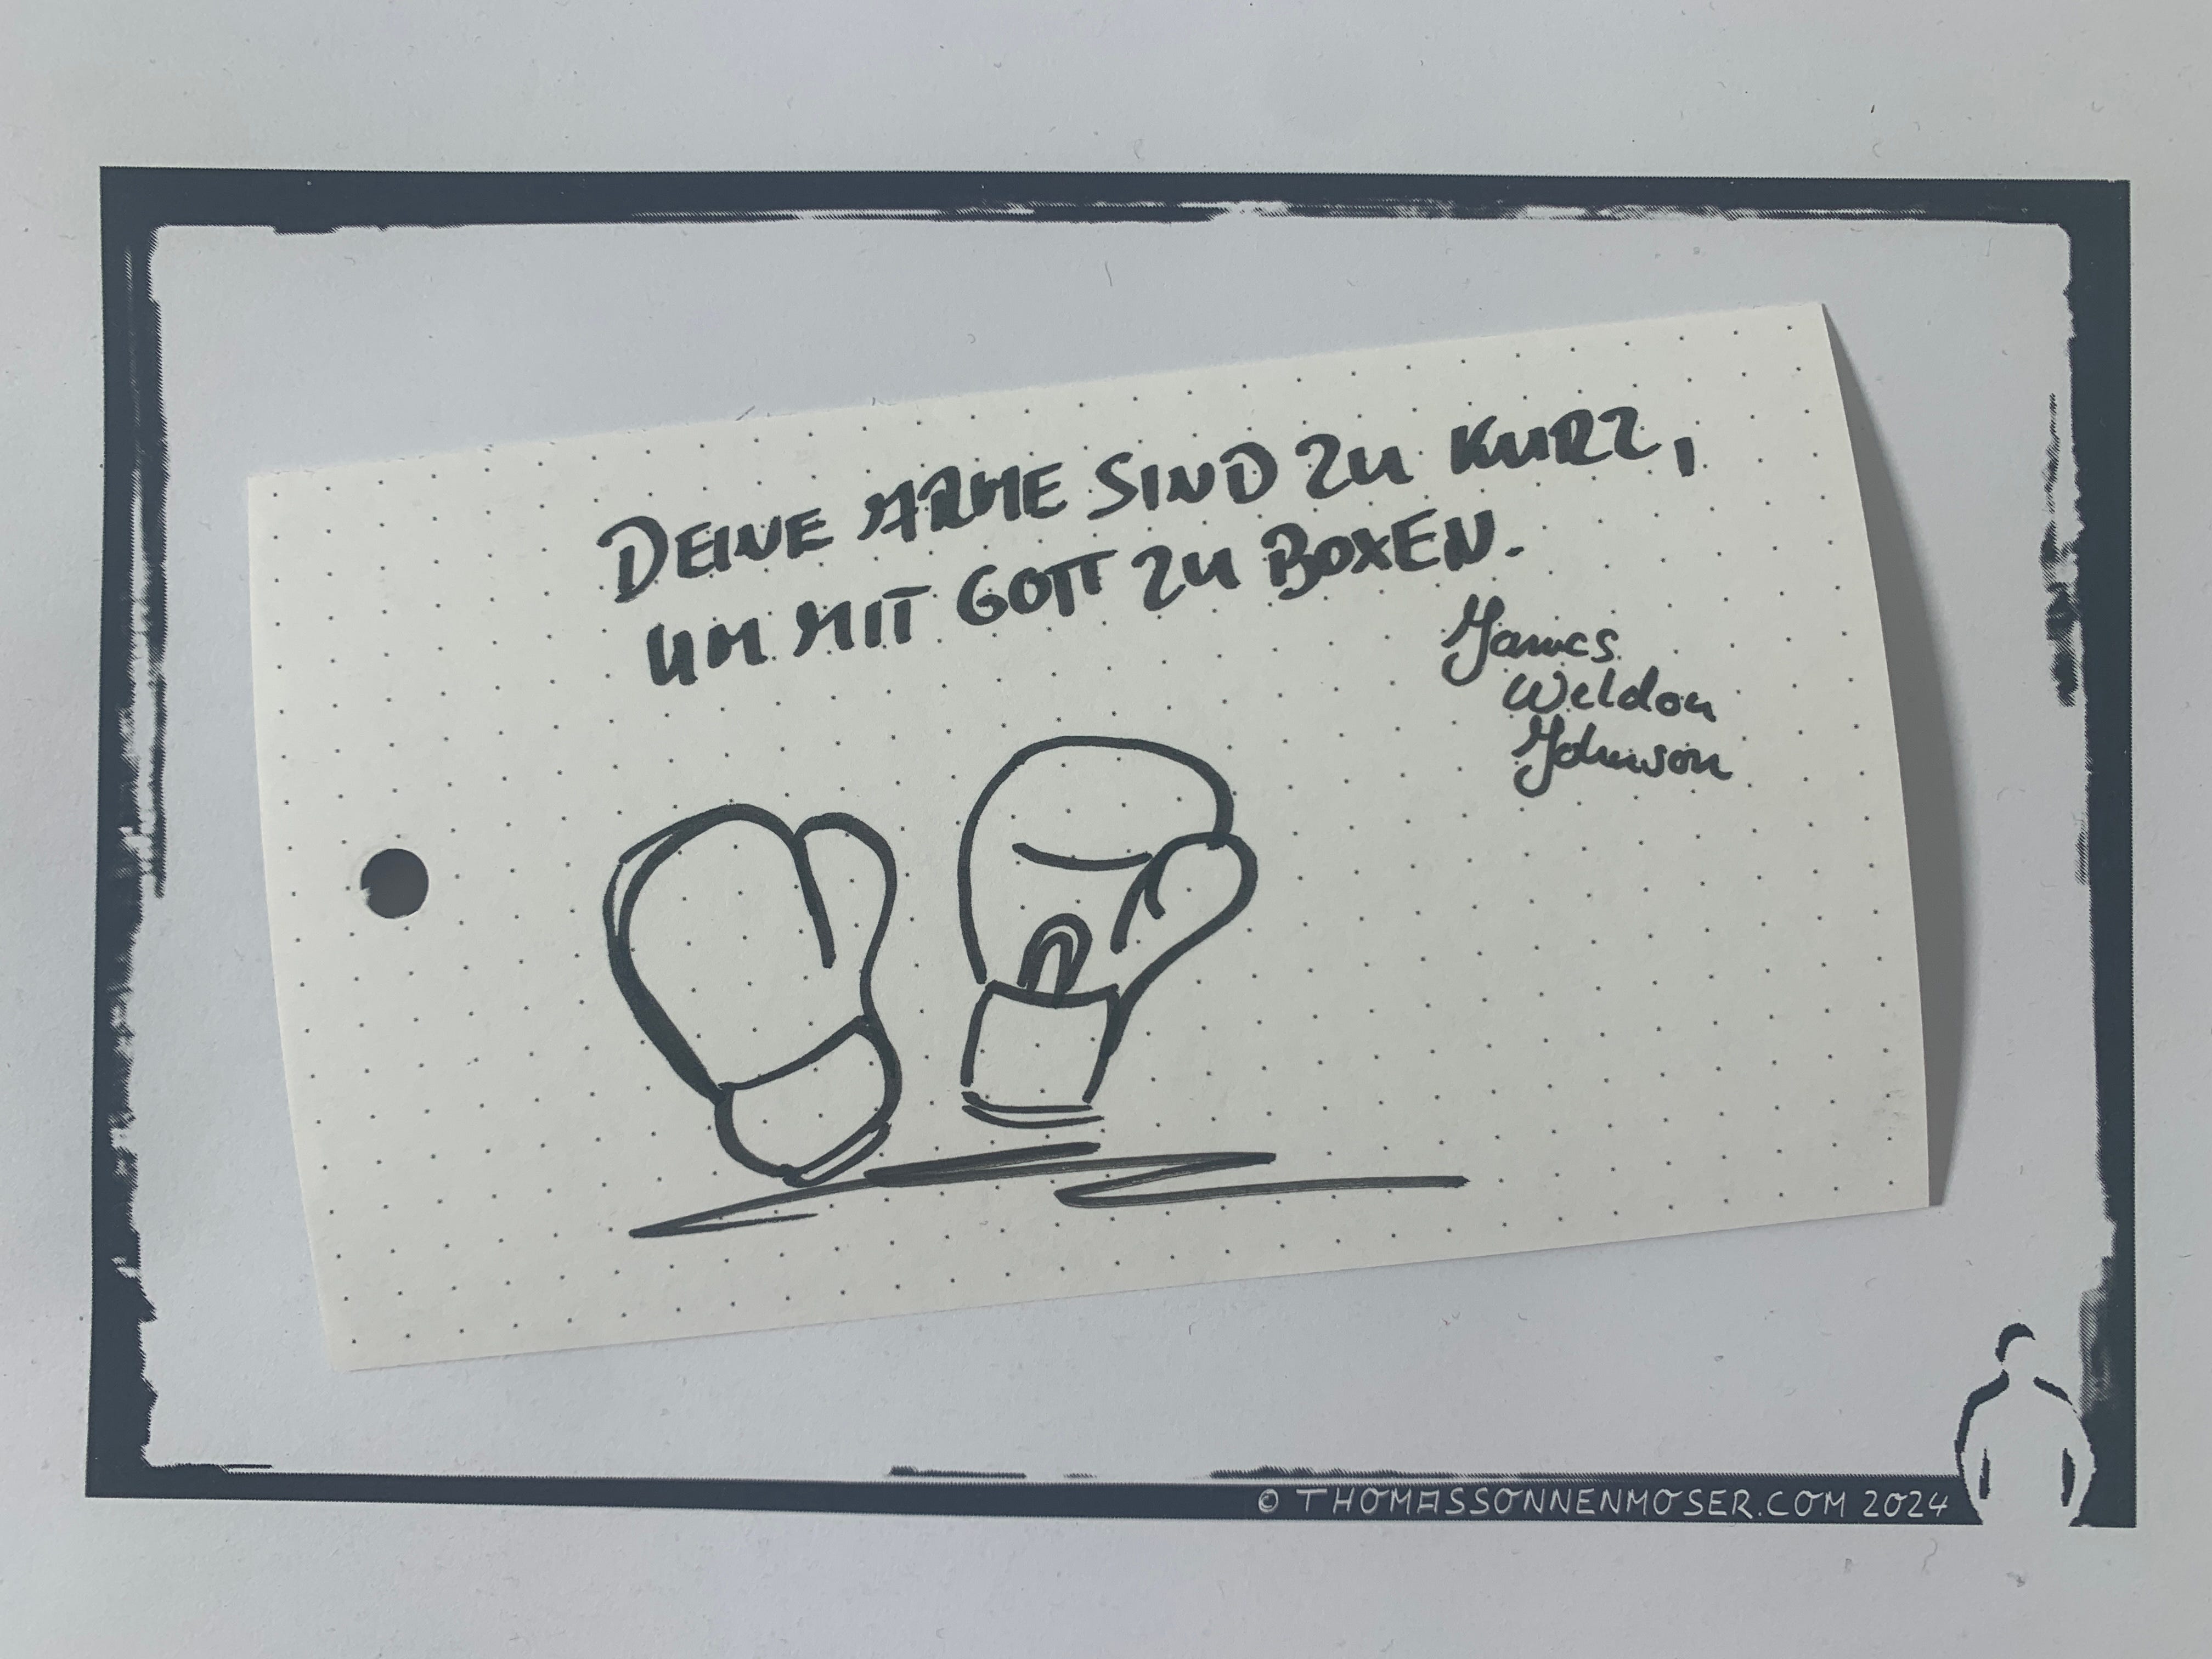 DEINE ARME SIND ZU KURZ,
UM MIT GOTT ZU BOXEN.
James
Weldon
Johnson
© THOMASSONNENMOSER.COM 2024